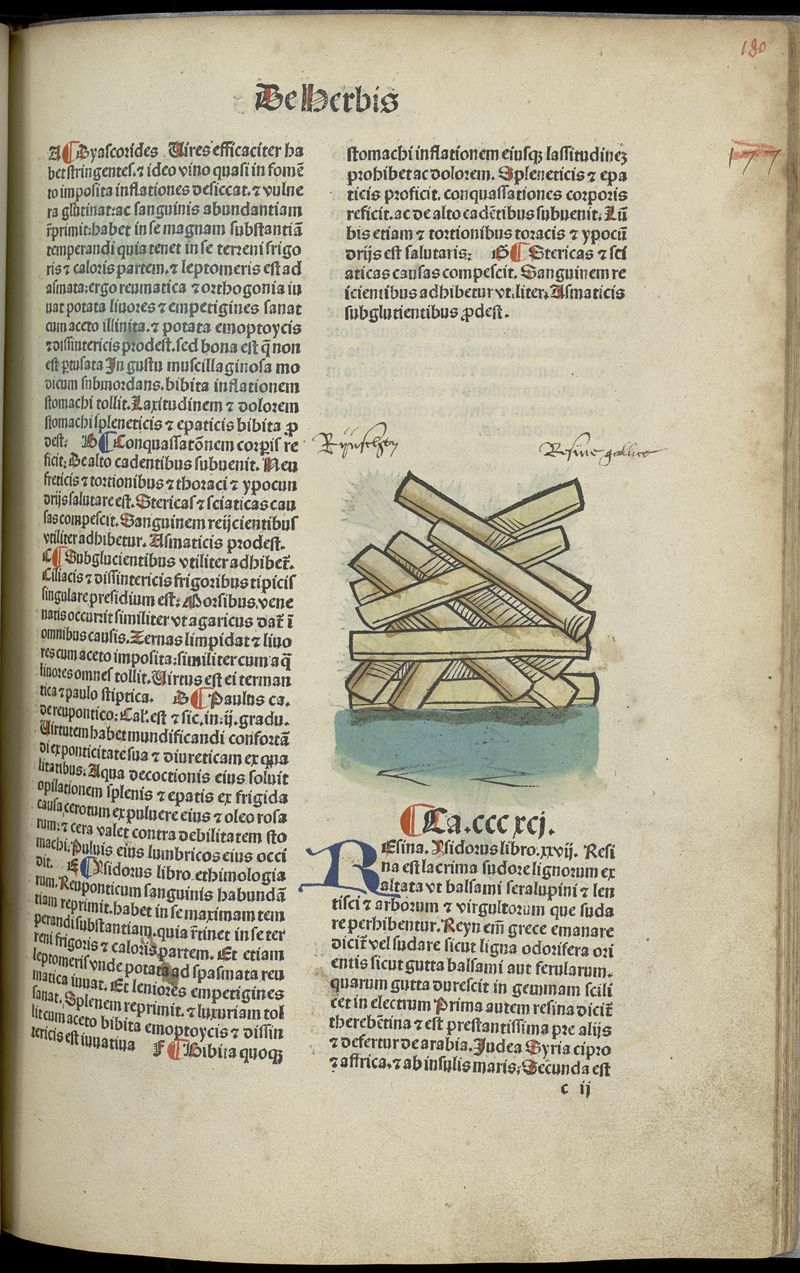 180
177
De Herbis
A ¶ Dyascorides Uires efficaciter ha
bet stringentes. ⁊ ideo vino quasi in fomẽ
to imposita inflationes desiccat. ⁊ vulne
ra glutinat: ac sanguinis abundantiam
r̃primit: habet in se magnam substantiã
temperandi quia tenet in se terreni frigo
ris ⁊ caloris partem. ⁊ leptomeris est ad
asmata: ergo reumatica ⁊ orthogonia iu
uat potata liuores ⁊ empetigines sanat
cum aceto illinita. ⁊ potata emoptoycis
⁊ dissintericis prodest. sed bona est q̃ non
est ꝑtusata In gustu muscillaginosa mo
dicum submordans. bibita inflationem
stomachi tollit. Laxitudinem ⁊ dolorem
stomachi spleneticis ⁊ epaticis bibita ꝓ
dest: B ¶ Conquassatõnem corꝑis re
ficit: De alto cadentibus subuenit. Neu
freticis ⁊ tortionibus ⁊ thoraci ⁊ ypocun
drijs salutare est. Stericas ⁊ sciaticas cau
sas compescit. Sanguinem reijcientibus
vtiliter adhibetur. Asmaticis prodest.
C ¶ Subglucientibus vtiliter adhibet᷑.
Ciliacis ⁊ dissintericis frigoribus tipicis
singulare presidium est: Morsibus vene
natis occurrit similiter vt agaricus dat᷑ ĩ
omnibus causis. Zernas limpidat ⁊ liuo
res cum aceto imposita: similiter cum aq̃
liuores omnes tollit. Uirtus est ei terman
tica ⁊ paulo stiptica. D ¶ Paulus ca.
de reupontico: Cal'. est ⁊ sic. in .ij. gradu.
Uirtutem habet mundificandi confortã
di ex ponticitate sua ⁊ diureticam ex qua
litatibus. Aqua decoctionis eius soluit
opilationem splenis ⁊ epatis ex frigida
causa, cerotum ex puluere eius ⁊ oleo rosa
rum: ⁊ cera valet contra debilitatem sto
machi. Puluis eius lumbricos eius occi
dit. E ¶ Ysidorus libro ethimologia
rum. Reuponticum sanguinis habundã
tiam reprimit. habet in se maximam tem
perandi substantiam. quia r̃tinet in se ter
reni frigoris ⁊ caloris partem. Et etiam
leptomeris vnde potata ad spasmata reu
matica iuuat. Et leniores empetigines
sanat. Splenem reprimit. ⁊ luxuriam tol
lit cum aceto bibita emoptoycis ⁊ dissin
tericis est iuuatiua F ¶ Bibita quoqꝫ
stomachi inflationem eiusqꝫ lassitudinẽ
prohibet ac dolorem. Spleneticis ⁊ epa
ticis proficit. conquassationes corporis
reficit. ac de alto cadẽtibus subuenit. Lũ
bis etiam ⁊ tortionibus toracis ⁊ ypocũ
drijs est salutaris: G ¶ Stericas ⁊ sci
aticas causas compescit. Sanguinem re
icientibus adhibetur vt.liter. Asmaticis
subglutientibus ꝓdest.
Resine gallice
¶ Ca. ccc xcj.
REsina. Ysidorus libro. xxvij. Resi
na est lacrima sudore lignorum ex
altata vt balsami feralupini ⁊ len
tisci ⁊ arborum ⁊ virgultorum que suda
re perhibentur. Reyn em̃ grece emanare
dicit᷑ vel sudare sicut ligna odorifera ori
entis sicut gutta balsami aut ferularum.
quarum gutta durescit in gemmam scili
cet in electrum Prima autem resina dicit᷑
therebẽtina ⁊ est prestantissima pre alijs
⁊ defertur de arabia. Judea Syria cipro
⁊ affrica. ⁊ ab insulis maris: Secunda est
c ij